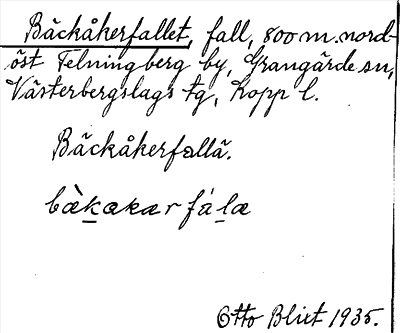 Bäckåkerfallet, fall, 800 m. nord-
öst Telningberg by, Grangärde sn,
Västerbergslags tg, Kopp l.
Bäckåkerfallä.
bækakær fala
Otto Blixt 1935.